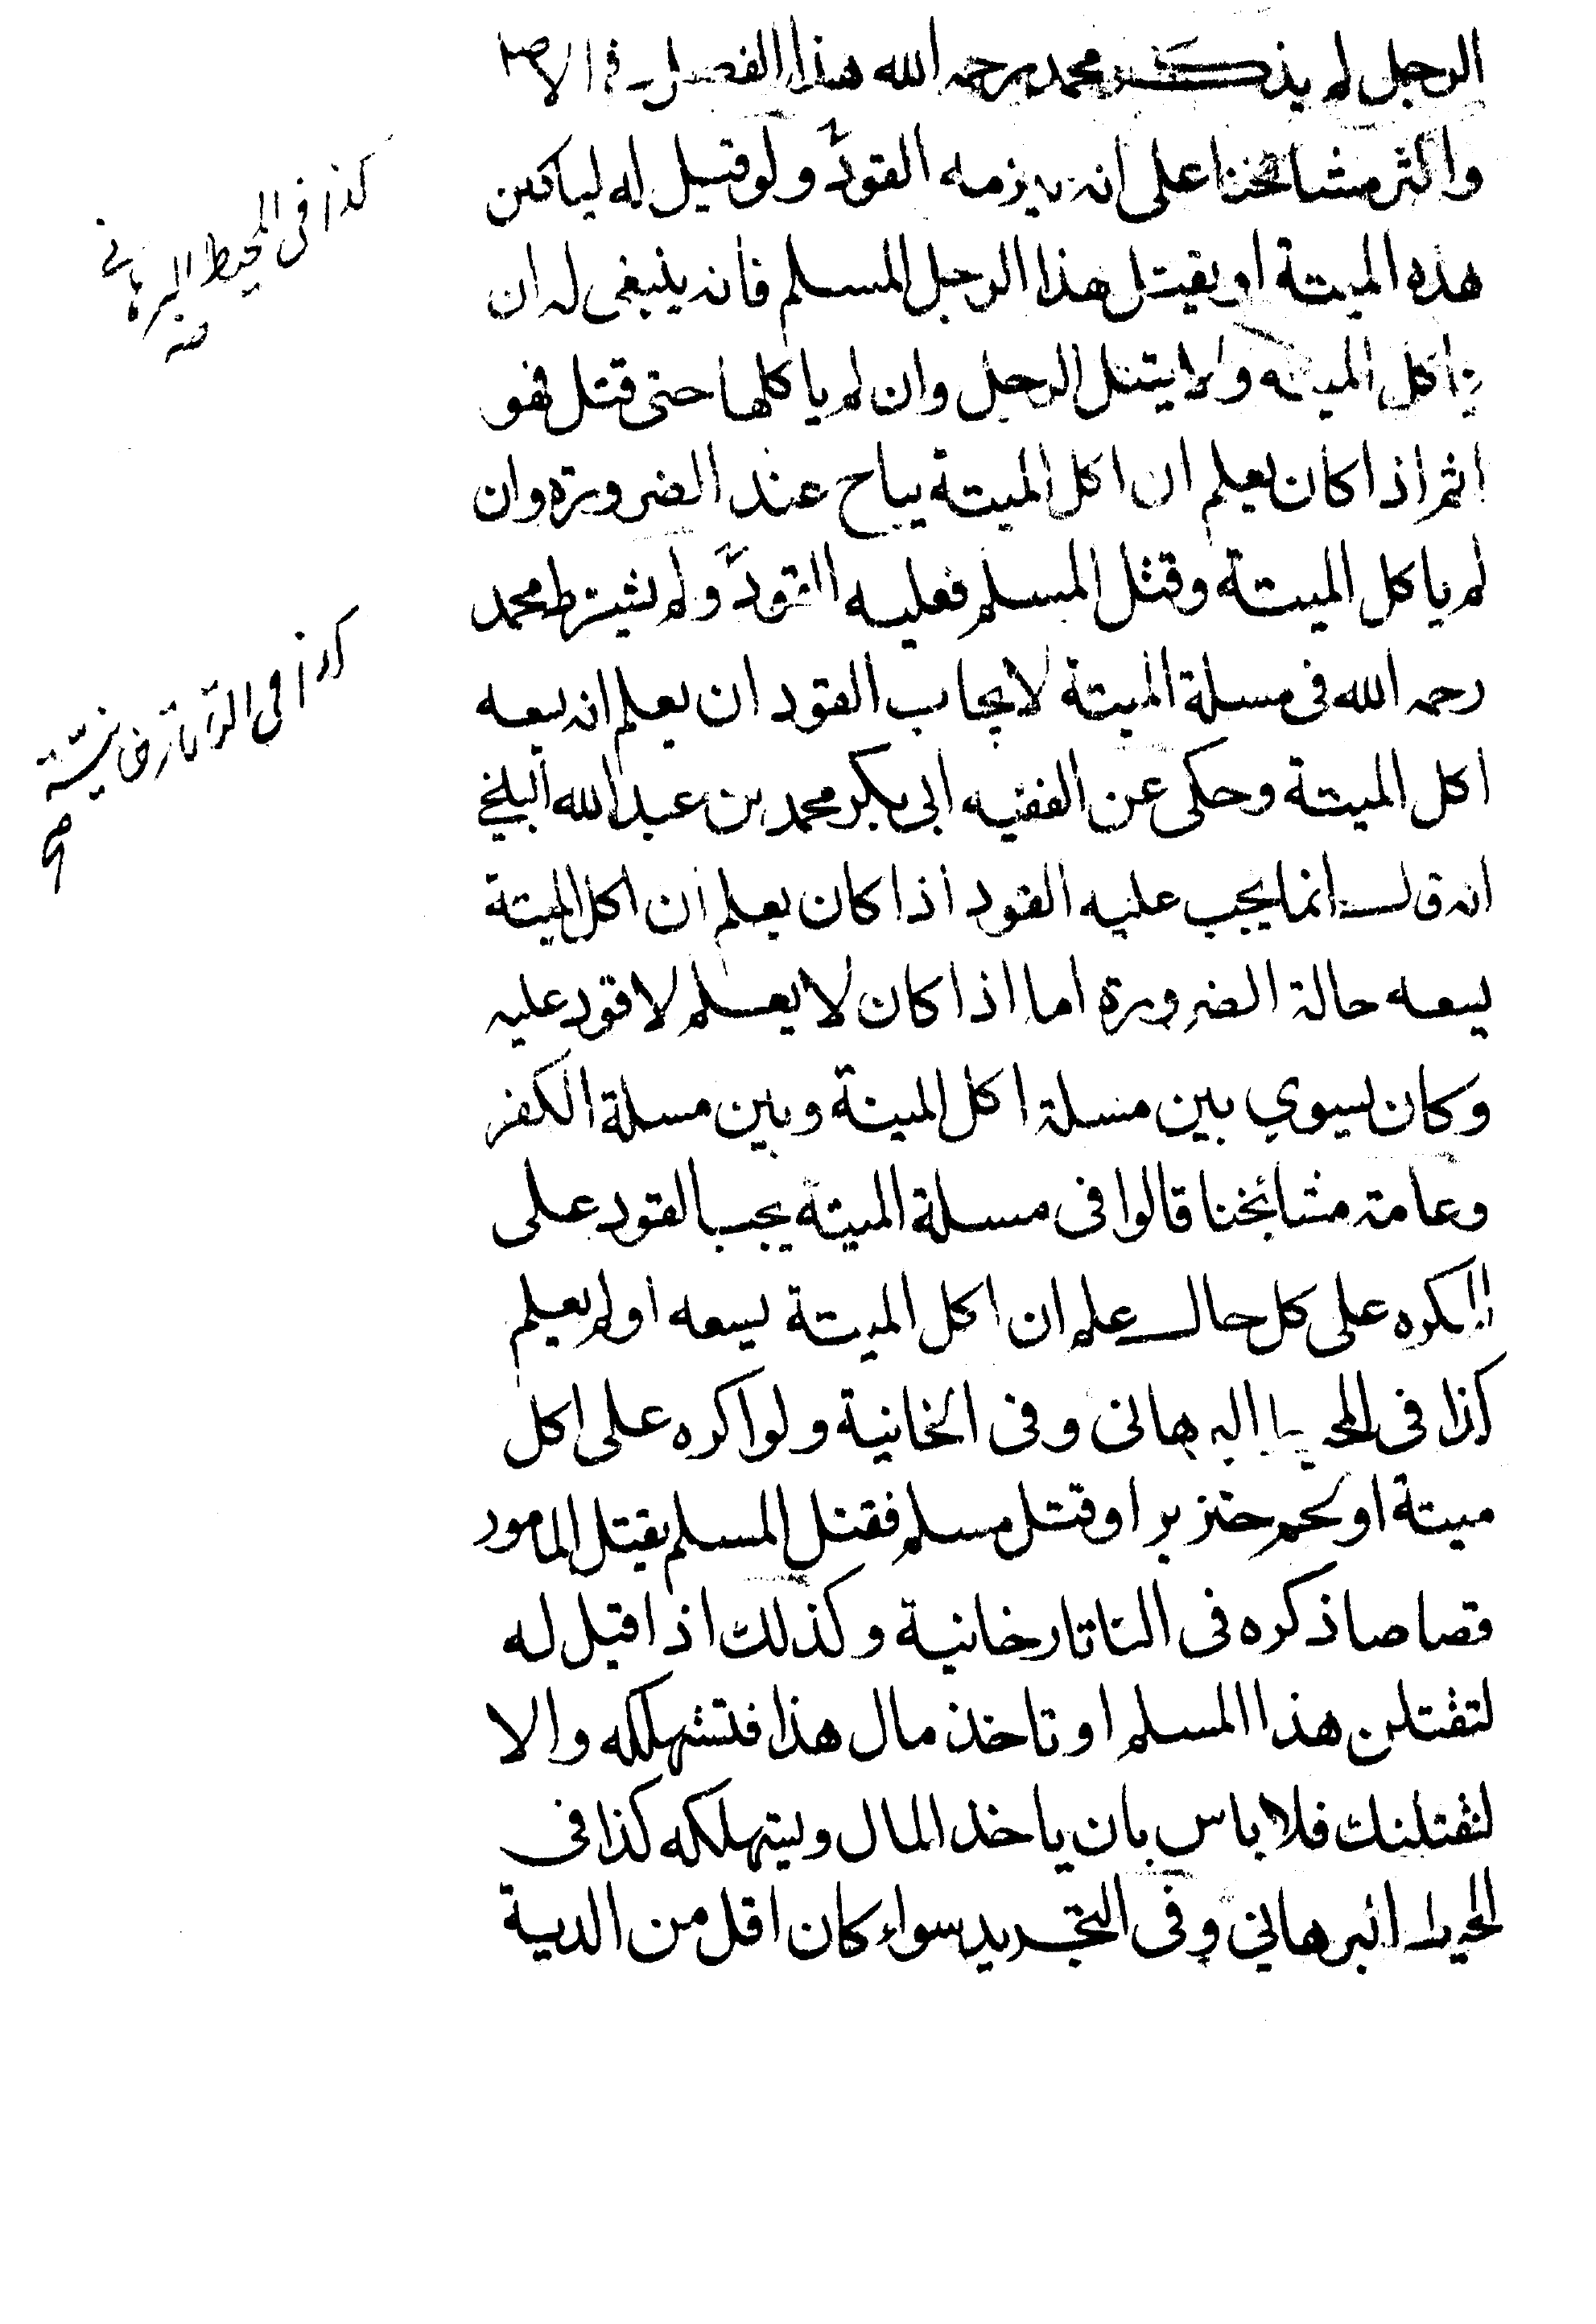 الرجل لم يذكر محمد رحمه الله هذا الفصل في الاصل
واكثر مشائخنا على انه يلزمه القود ولو قيل له لياكلن
هذه الميتة او يقتل هذا الرجل المسلم فانه ينبغى له ان
ياكل الميته ولا يقتل الرجل وان لم ياكلها حتى قتل فهو
اثم اذا كان يعلم ان اكل الميتة يباح عند الضرورة وان
لم ياكل الميتة وقتل المسلم فعليه القود ولم يشترط محمد
رحمه الله فى مسلة الميتة لايجاب القود ان يعلم انه يسعه
اكل الميتة وحكى عن الفقيه ابى بكر محمد بن عبد الله البلخي
انه قال انما يجب عليه القود اذا كان يعلم ان اكل الميتة
يسعه حالة الضرورة اما اذا كان لا يعلم لا قود عليه
وكان يسوي بين مسلة اكل الميتة وبين مسلة الكفر
وعامة مشائخنا قالوا فى مسلة الميتة يجب القود على
المكره على كل حال علم ان اكل الميتة يسعه او لم يعلم
كذا فى المحيط البرهانى وفى الخانية ولو اكره على اكل
ميتة او لحم خنزير او قتل مسلم فقتل المسلم يقتل المامور
قصاصا ذكره فى التاتارخانية وكذلك اذا قيل له
لتقتلن هذا المسلم او تاخذ مال هذا فتستهلكه والا
لنقتلنك فلا باس بان ياخذ المال ويستهلكه كذا فى
المحيط البرهاني وفى التجريد سواء كان اقل من الدية
كذا في المحيط البرهاني
منه
كذا في التاتارخانية